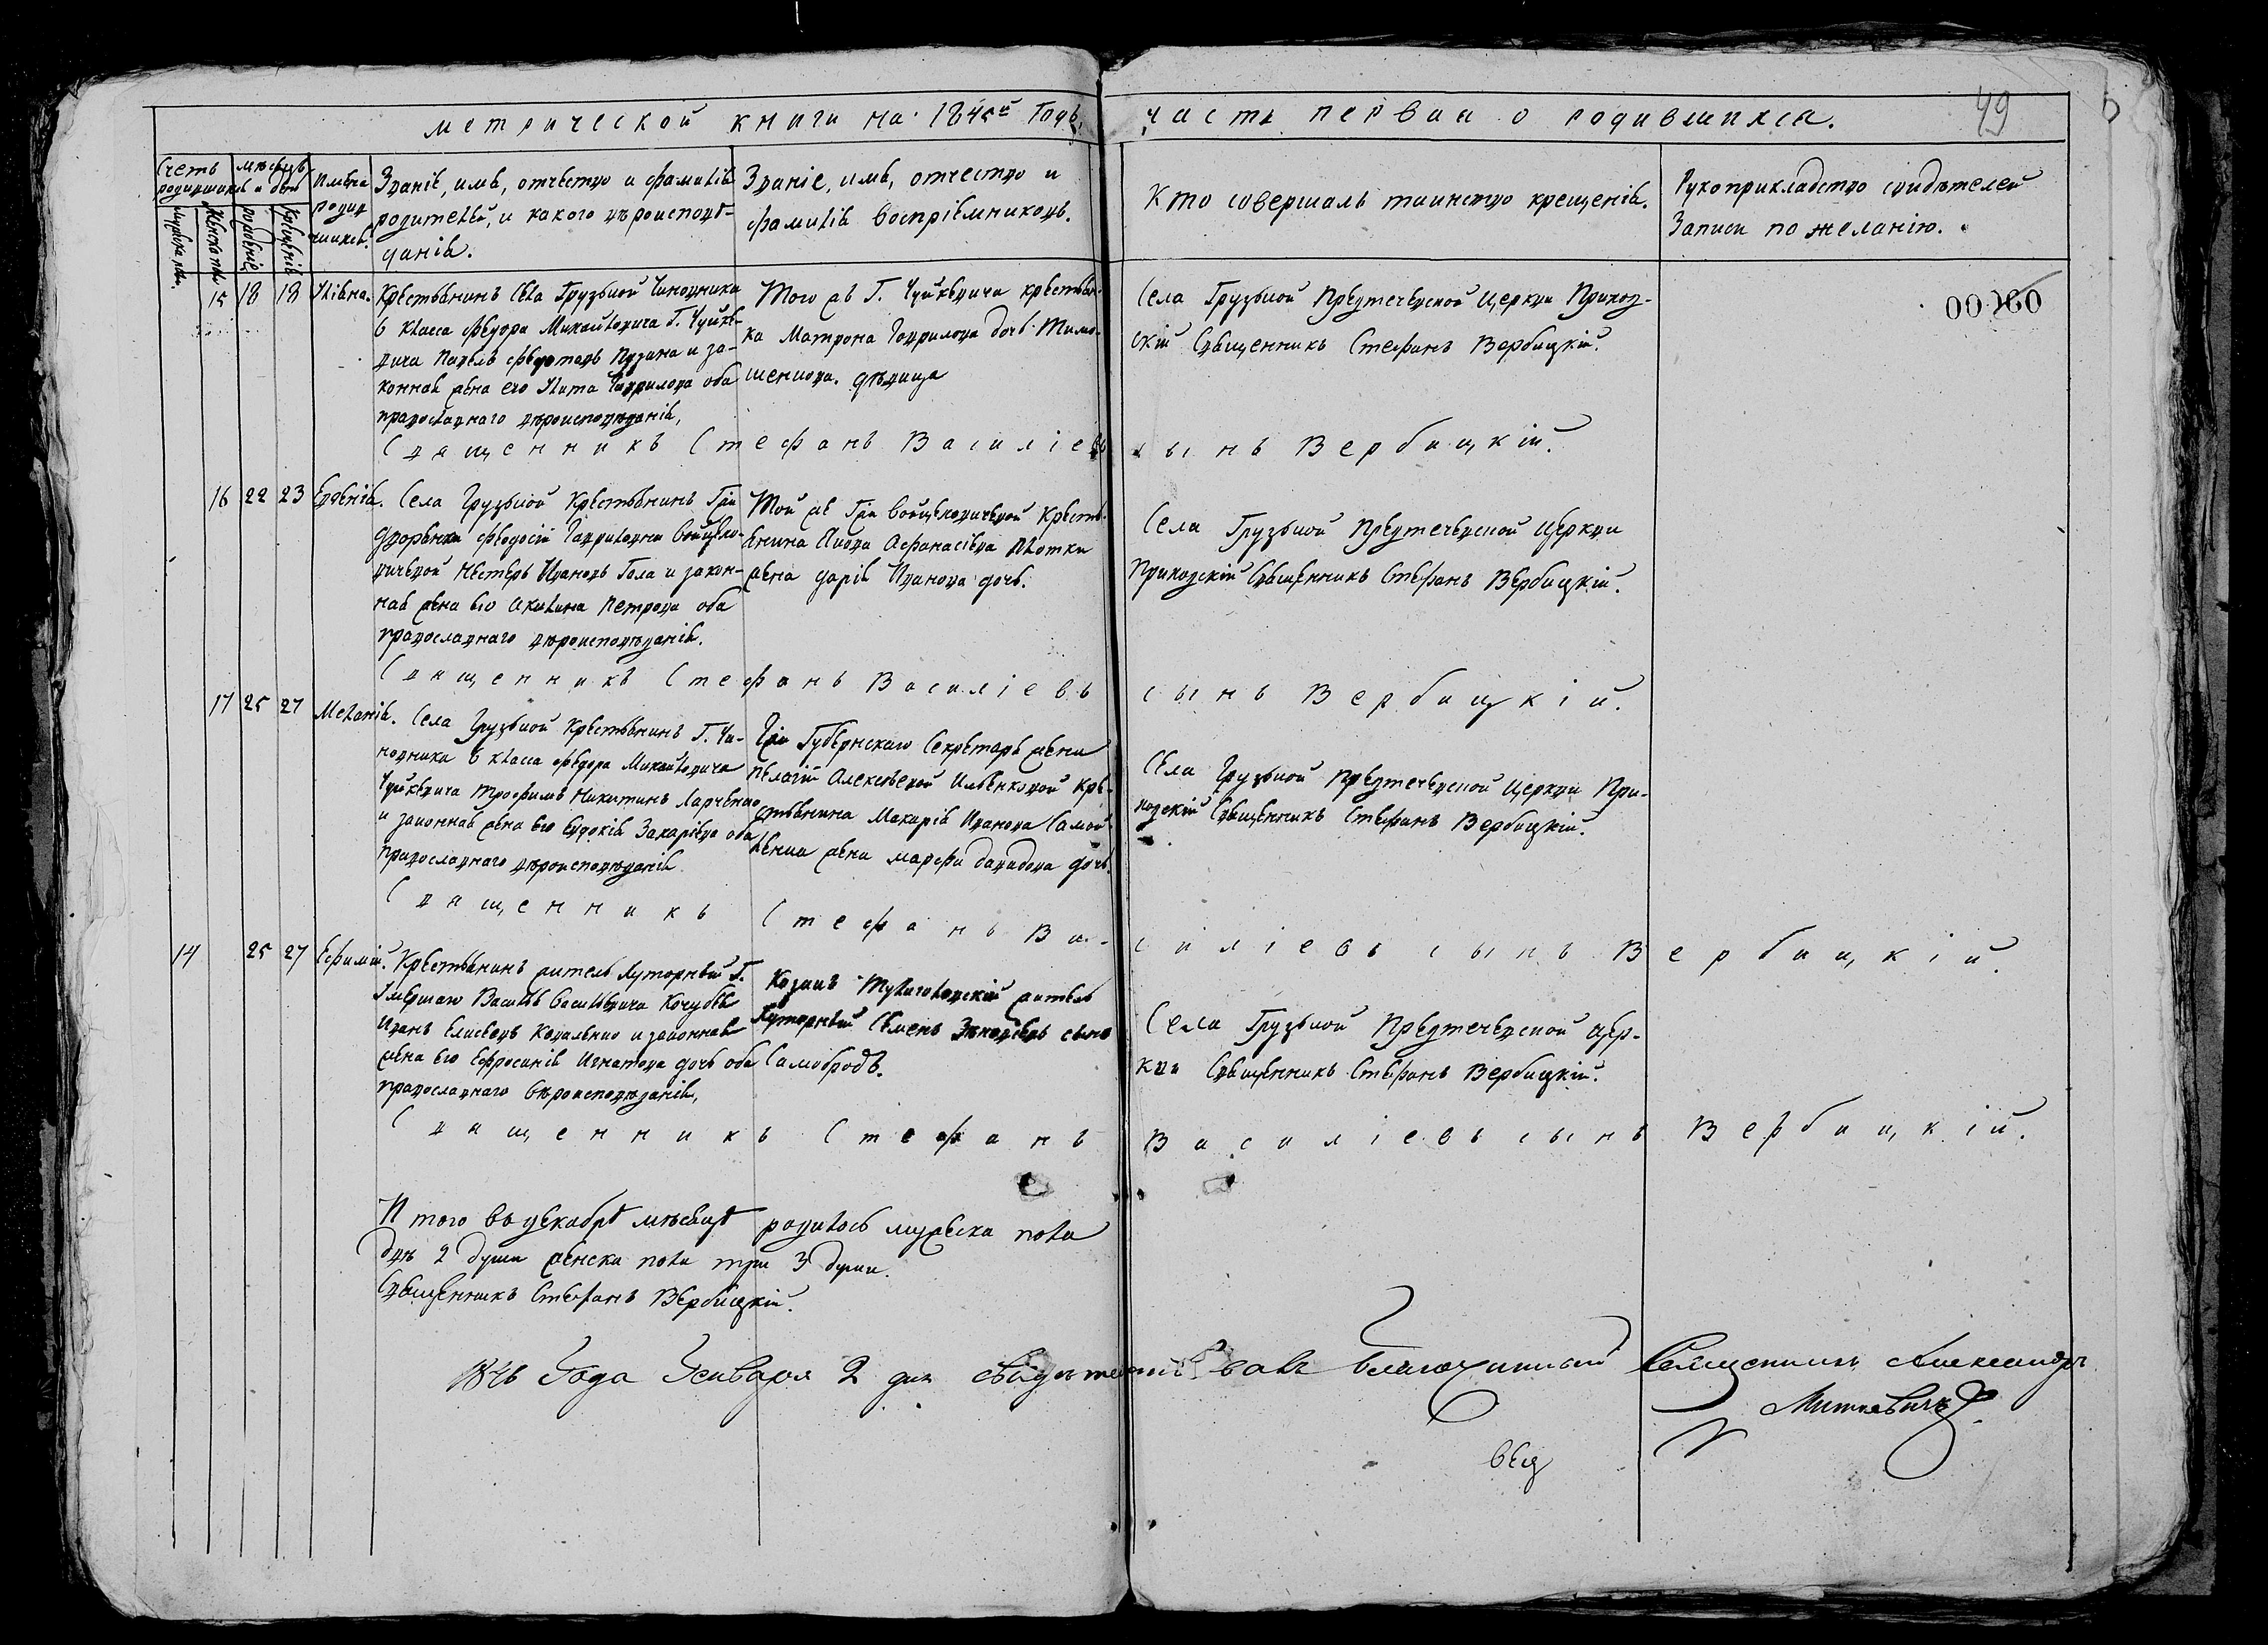 метрической книги на 1845й Годъ, часть первая о родившихся.
49
Счетъ родившихся
мѣсяцъ и дни
Имена родившихся.
Званіе, имя, отчество и фамилія родителей, и какого вѣроисповѣданія.
Званіе, имя, отчество и фамилія воспріемниковъ.
Кто совершалъ таинство крещенія.
Рукоприкладство свидѣтелей записи по желанію.
Мужеска пола.
Женска пола
рожденіе
крещеніе
00060
15 18 18
Крестьянинъ села Грузской Чиновника
6 класса Федора Михайловича Г. Чуйке-
вича Павелъ
и за-
конная жена его Гаврилова оба
православнаго вѣроисповѣданія,
Того же Г. Чуйкевича крестьян-
ка Матрона Гаврилова дочь Тимо-
шенкова. дѣвица
Села Грузской Предтечевской Церкви Приход-
скій Священникъ Стефанъ Вербицкій.
Священникъ Стефанъ Василіевъ сынъ Вербицкій.
16 22 23 Евгенія.
Села Грузской Крестьянинъ Гжи
Дворянки Феодосіи Гавриловны Войцехо-
вичевой Нестеръ Ивановъ Гола и закон-
ная жена его Акилина Петрова оба
православнаго вѣроисповѣданія.
Той же Гжи Войцеховичевой Кресть-
янина Афанасіева Плотки
жена Дарія Иванова дочь.
Села Грузской Предтечевской Церкви
Приходскій Священникъ Стефанъ Вербицкій.
Священникъ Стефанъ Василіевъ сынъ Вербицкій.
17 25 27 Меланія.
Села Грузской Крестьянинъ Г. Чи-
новника 6 класса Федора Михайловича
Чуйкевича Трофимъ Никитинъ Харченко
и законная жена его Евдокія Захаріева оба
православнаго вѣроисповѣданія
Гжи Губернскаго Секретаря жены
Пелагіи Алексѣевой Ильенковой Кре-
стьянина Макарія Иванова Самой-
ленка жена Марфа Давидова дочь.
Села Грузской Предтечевской Церкви При-
ходскій Священникъ Стефанъ Вербицкій.
Священникъ Стефанъ Василіевъ сынъ Вербицкій.
14 25 27 Ефимій.
Крестьянинъ житель Хуторный Г.
Умершаго Василія Василіевича Кочубея
Иванъ Елисеевъ Коваленко и законная
жена его Ефросинія Игнатова дочь оба
православнаго вѣроисповѣданія,
Козакъ Тулиголовскій житель
Хуторный Семенъ сынъ
Самобродъ.
Села Грузской Предтечевской Цер-
кви Священникъ Стефанъ Вербицкій.
Священникъ Стефанъ Василіевъ сынъ Вербицкій.
Итого въ декабрѣ мѣсяцѣ родилось мужеска пола
двѣ 2 души женска пола три 3 души.
Священникъ Стефанъ Вербицкій.
1846 Года Января 2 дня свидѣтельствовалъ Благочинный Священникъ Александръ
Миткевичъ